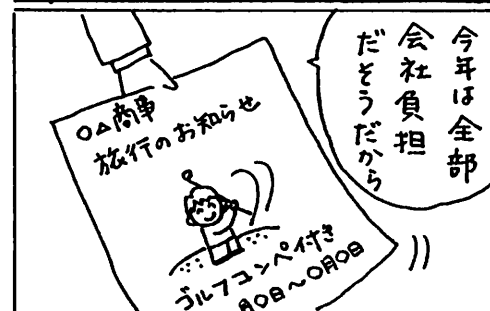 今年は全部
会社負担
だそうだから
○△商事
旅行のお知らせ
ゴルフコンペ付き
月〇日〜〇月〇日